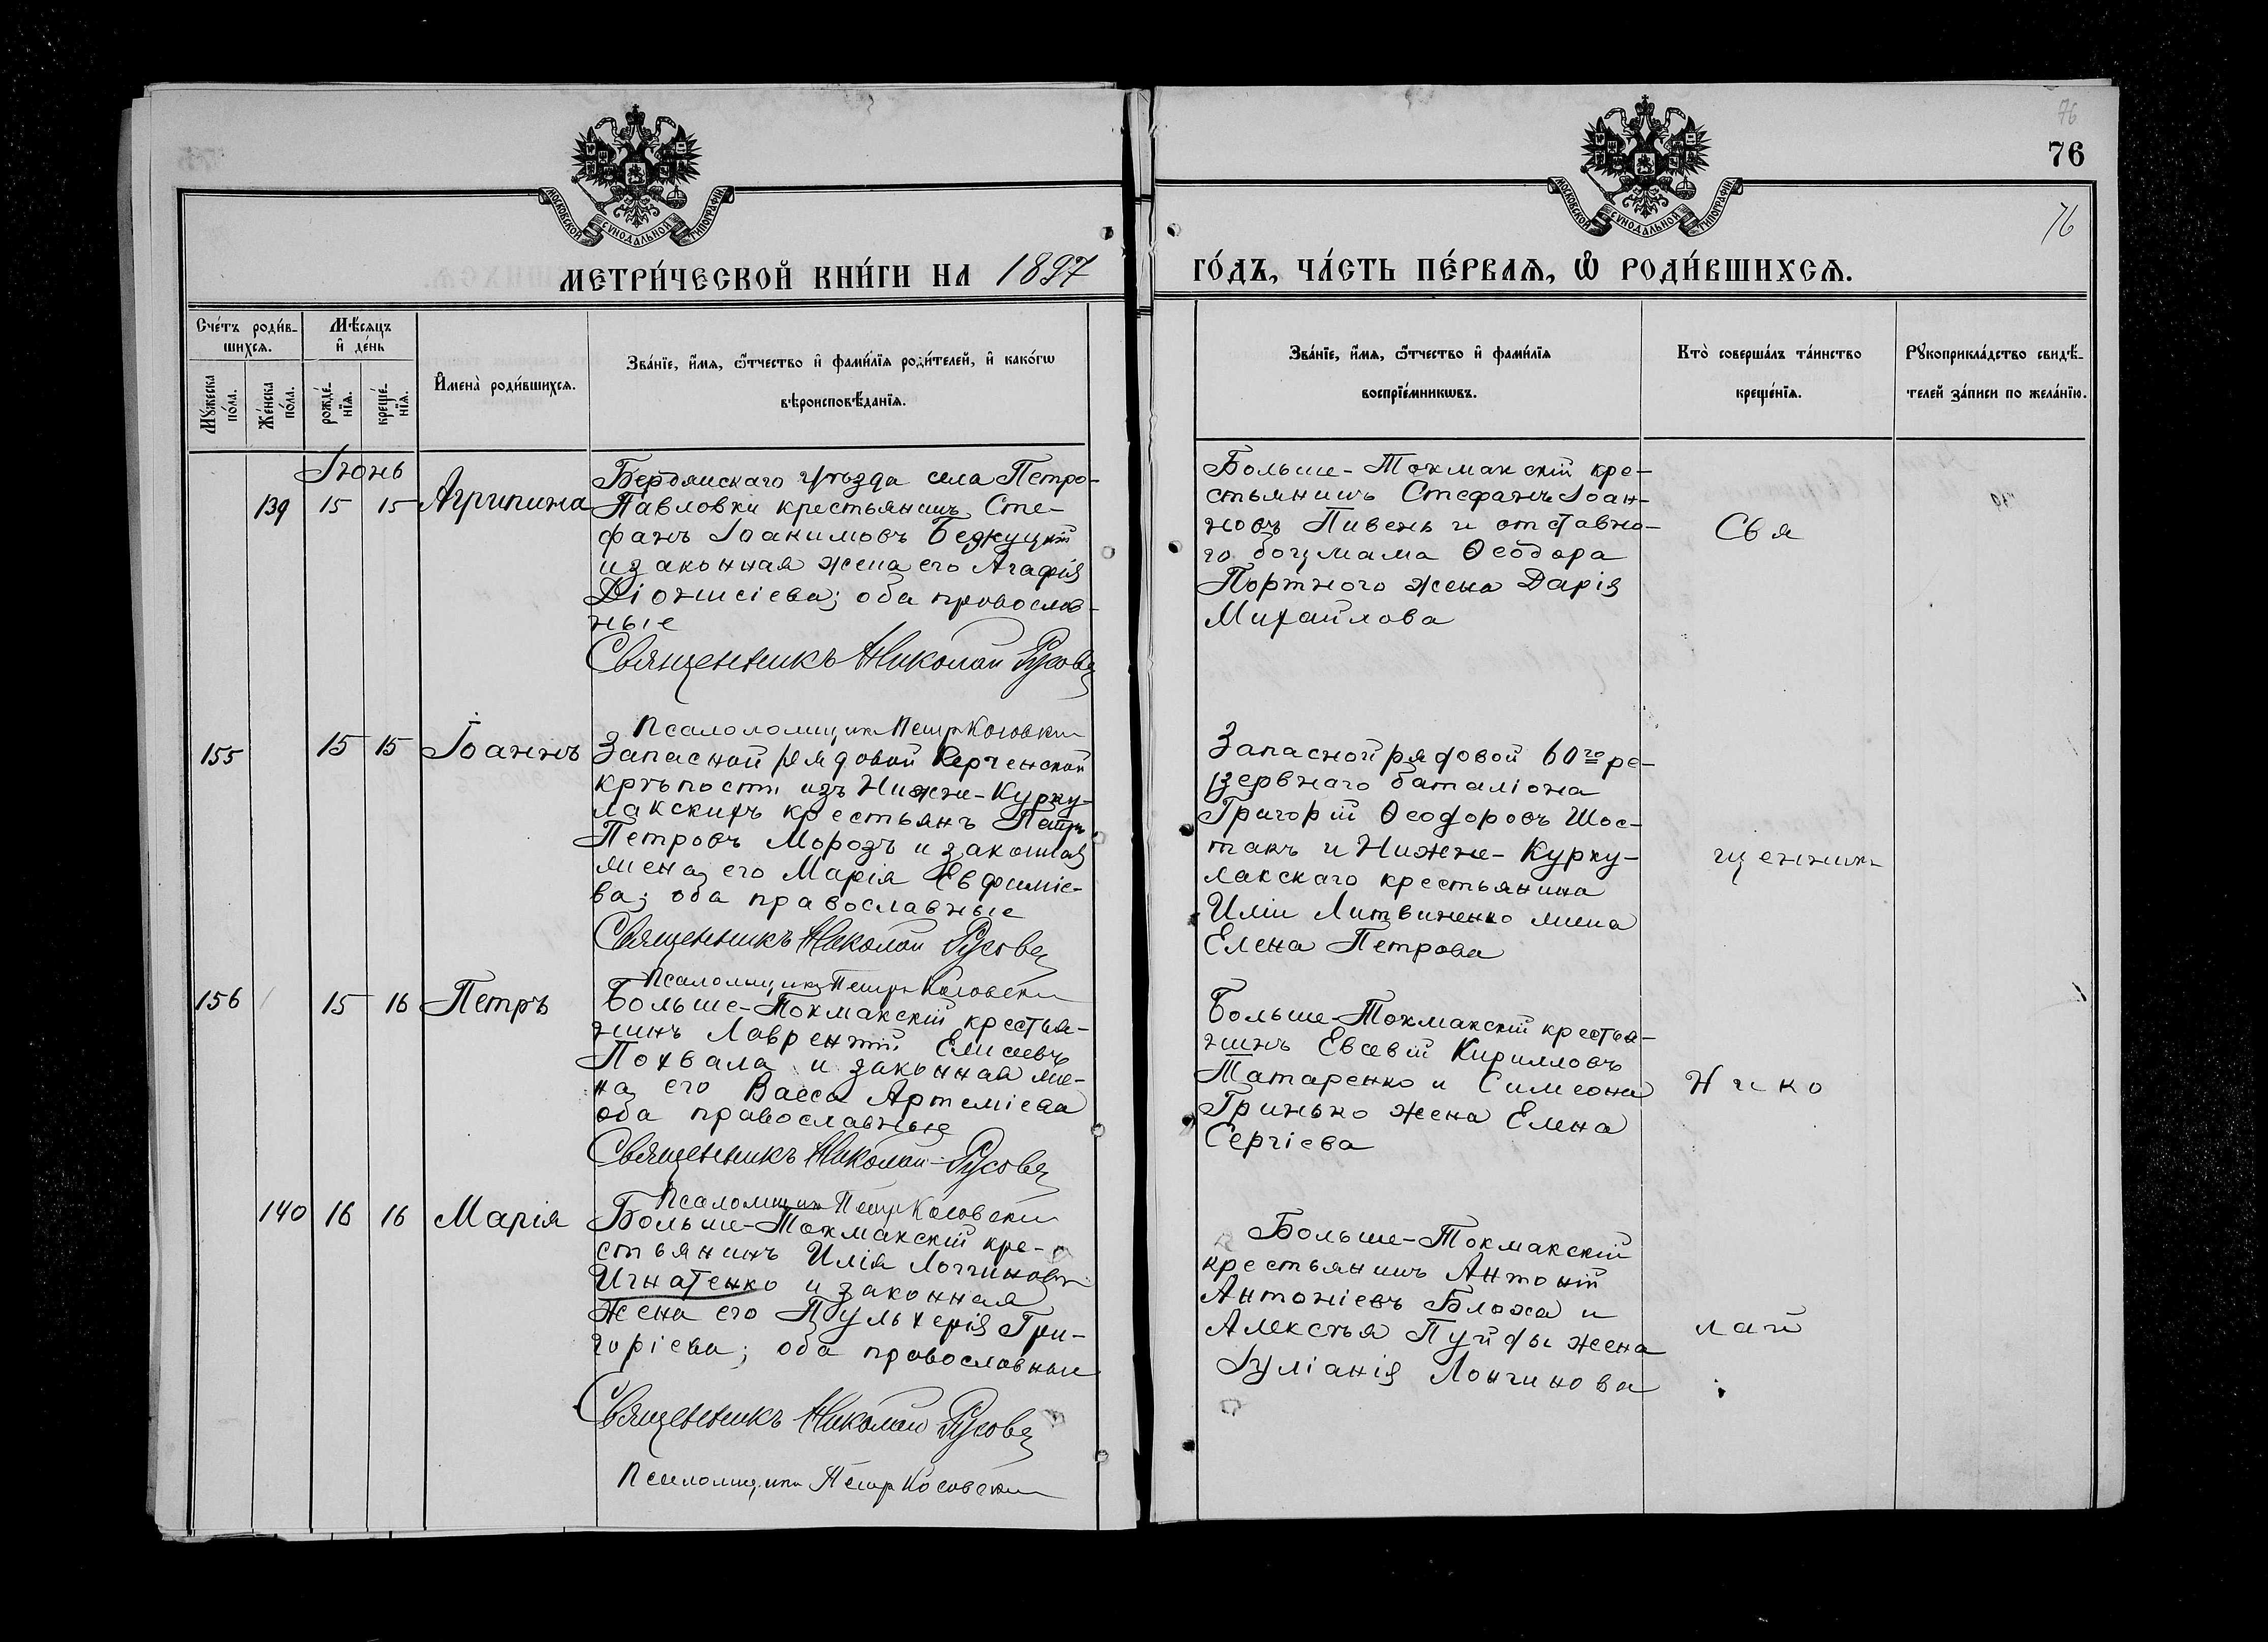 76
76
МОСКОВСКОЙ СѴНОДАЛЬНОЙ ТИПОГРАФІИ
МОСКОВСКОЙ СѴНОДАЛЬНОЙ ТИПОГРАФІИ
76
МЕТРИ́ЧЕСКОЙ КНИ́ГИ НА 1897
ГО́ДЪ, ЧА́СТЬ ПЕ́РВАѦ, Ѽ РОДИ́ВШИХСѦ.
Сче́тъ роди́в-
шихсѧ.
Мѣ́сѧцъ
и҆ де́нь
Мꙋ́жеска
по́ла.
Же́нска
по́ла.
рожде́-
нїѧ.
креще́-
нїѧ.
И҆мена̀ роди́вшихсѧ.
Зва́нїе, и҆́мѧ, ѻ҆́тчество и҆ фами́лїѧ роди́телей, и҆ како́гѡ
вѣроисповѣ́данїѧ.
Зва́нїе, и҆́мѧ, ѻ҆́тчество и҆ фами́лїѧ
воспрїе́мникѡвъ.
Кто̀ соверша́лъ та́инство
креще́нїѧ.
Рꙋкоприкла́дство свидѣ́-
телей за́писи по жела́нїю.
Іюнь
139 15 15 Агрипина
Бердянскаго уѣзда села Петро-
Павловки крестьянинъ Сте-
фанъ Іоакимовъ
и законная жена его Агафія
Діонисіева; оба православ-
ные
Священникъ Николай Русовъ
Псаломщикъ Петръ Косовски
Больше-Токмакскій кре-
стьянинъ Стефанъ Іоан-
новъ Пивень и отставно-
го боцмана Ѳеодора
Портного жена Дарія
Михайлова
Свя
155 15 15 Іоаннъ
Запасной рядовой Керченской
крѣпости изъ Нижне-Курку-
лакскихъ крестьянъ Петръ
Петровъ Морозъ и законная
жена его Марія Евфиміе-
ва; оба православные
Священникъ Николай Русовъ
Псаломщикъ Петръ Косовски
Запасной рядовой 60го ре-
зервнаго баталіона
Григорій Ѳеодоровъ Шос-
такъ и Нижне-Курку-
лакскаго крестьянина
Иліи Литвиненко жена
Елена Петрова
щенникъ
156 15 16 Петръ
Больше-Токмакскій крестья-
нинъ Лаврентій Елисеевъ
Похвала и законная же-
на его Васса Артеміева
оба православные
Священникъ Николай Русовъ
Псаломщикъ Петръ Косовски
Больше-Токмакскій крестья-
нинъ Евсевій Кирилловъ
Татаренко и Симеона
Гринько жена Елена
Сергіева
Нико
140 16 16 Марія
Больше-Токмакскій кре-
стьянинъ Илія Логгиновъ
Игнатенко и законная
жена его Пульхерія Гри-
горіева; оба православные
Священникъ Николай Русовъ
Псаломщикъ Петръ Косовски
Больше-Токмакскій
крестьянинъ Антоній
Антоніевъ Блоха и
Алексѣя Пуйды жена
Іуліанія Лонгинова
лай